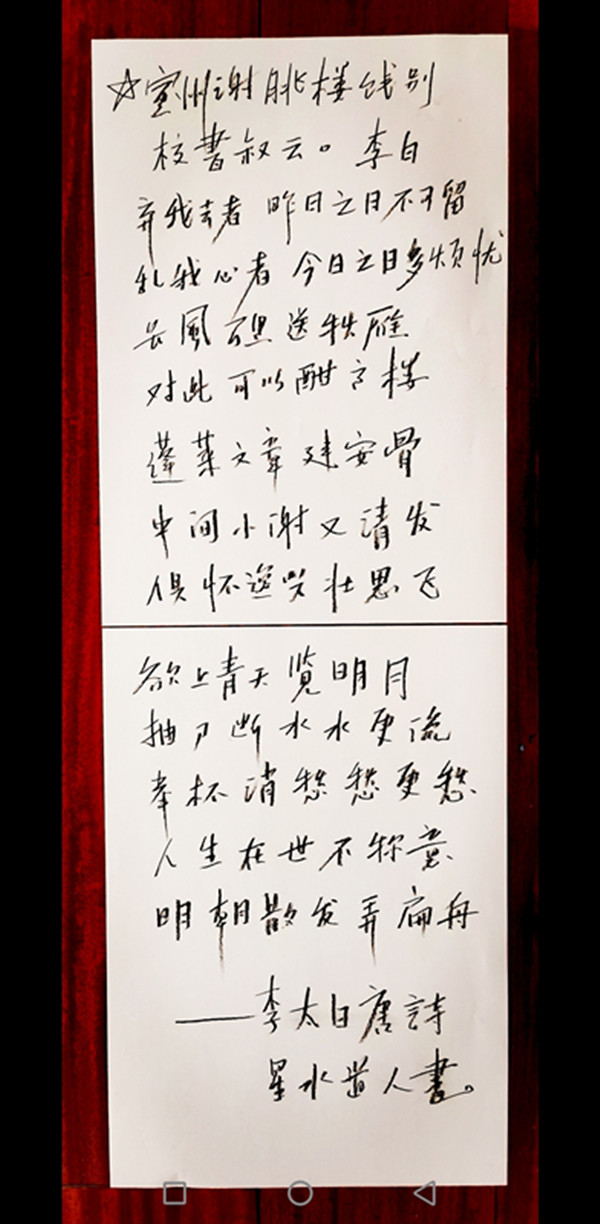 ☆宣州谢朓楼饯别
校書叔云。李白
弃我去者 昨日之日不可留
乱我心者 今日之日多烦忧
长風万里送秋雁
对此可以酣高楼
蓬莱文章建安骨
中间小谢又清发
俱怀逸兴壮思飞
欲上青天览明月
抽刀断水水更流
举杯消愁愁更愁
人生在世不称意
明朝散发弄扁舟
——李太白唐詩
星水道人書。